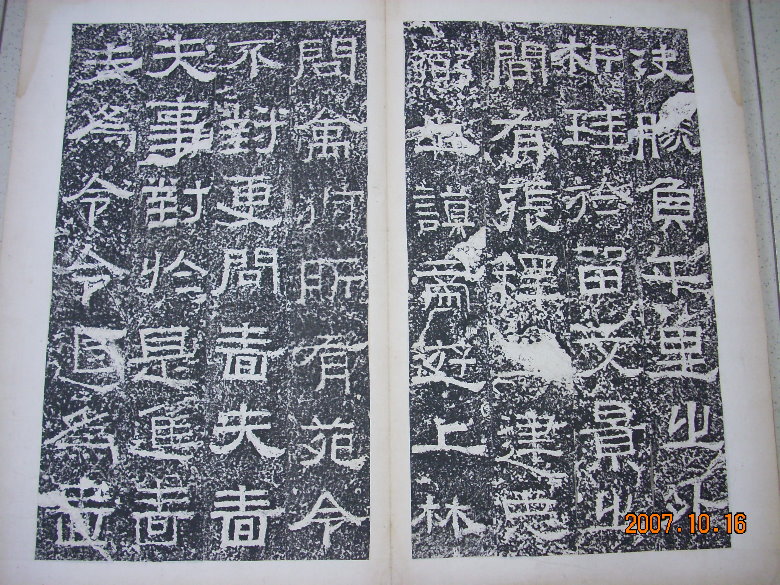 決勝負千里之外
析珪於留文景之
間有張釋之建忠
弼之謨帝遊上林
問禽狩所有苑令
不對更問嗇夫嗇
夫事對於是進嗇
夫為令令退為嗇
2007.10.16